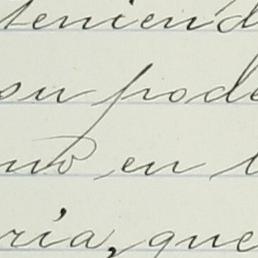 teniend
su pode
no en l
ria, que